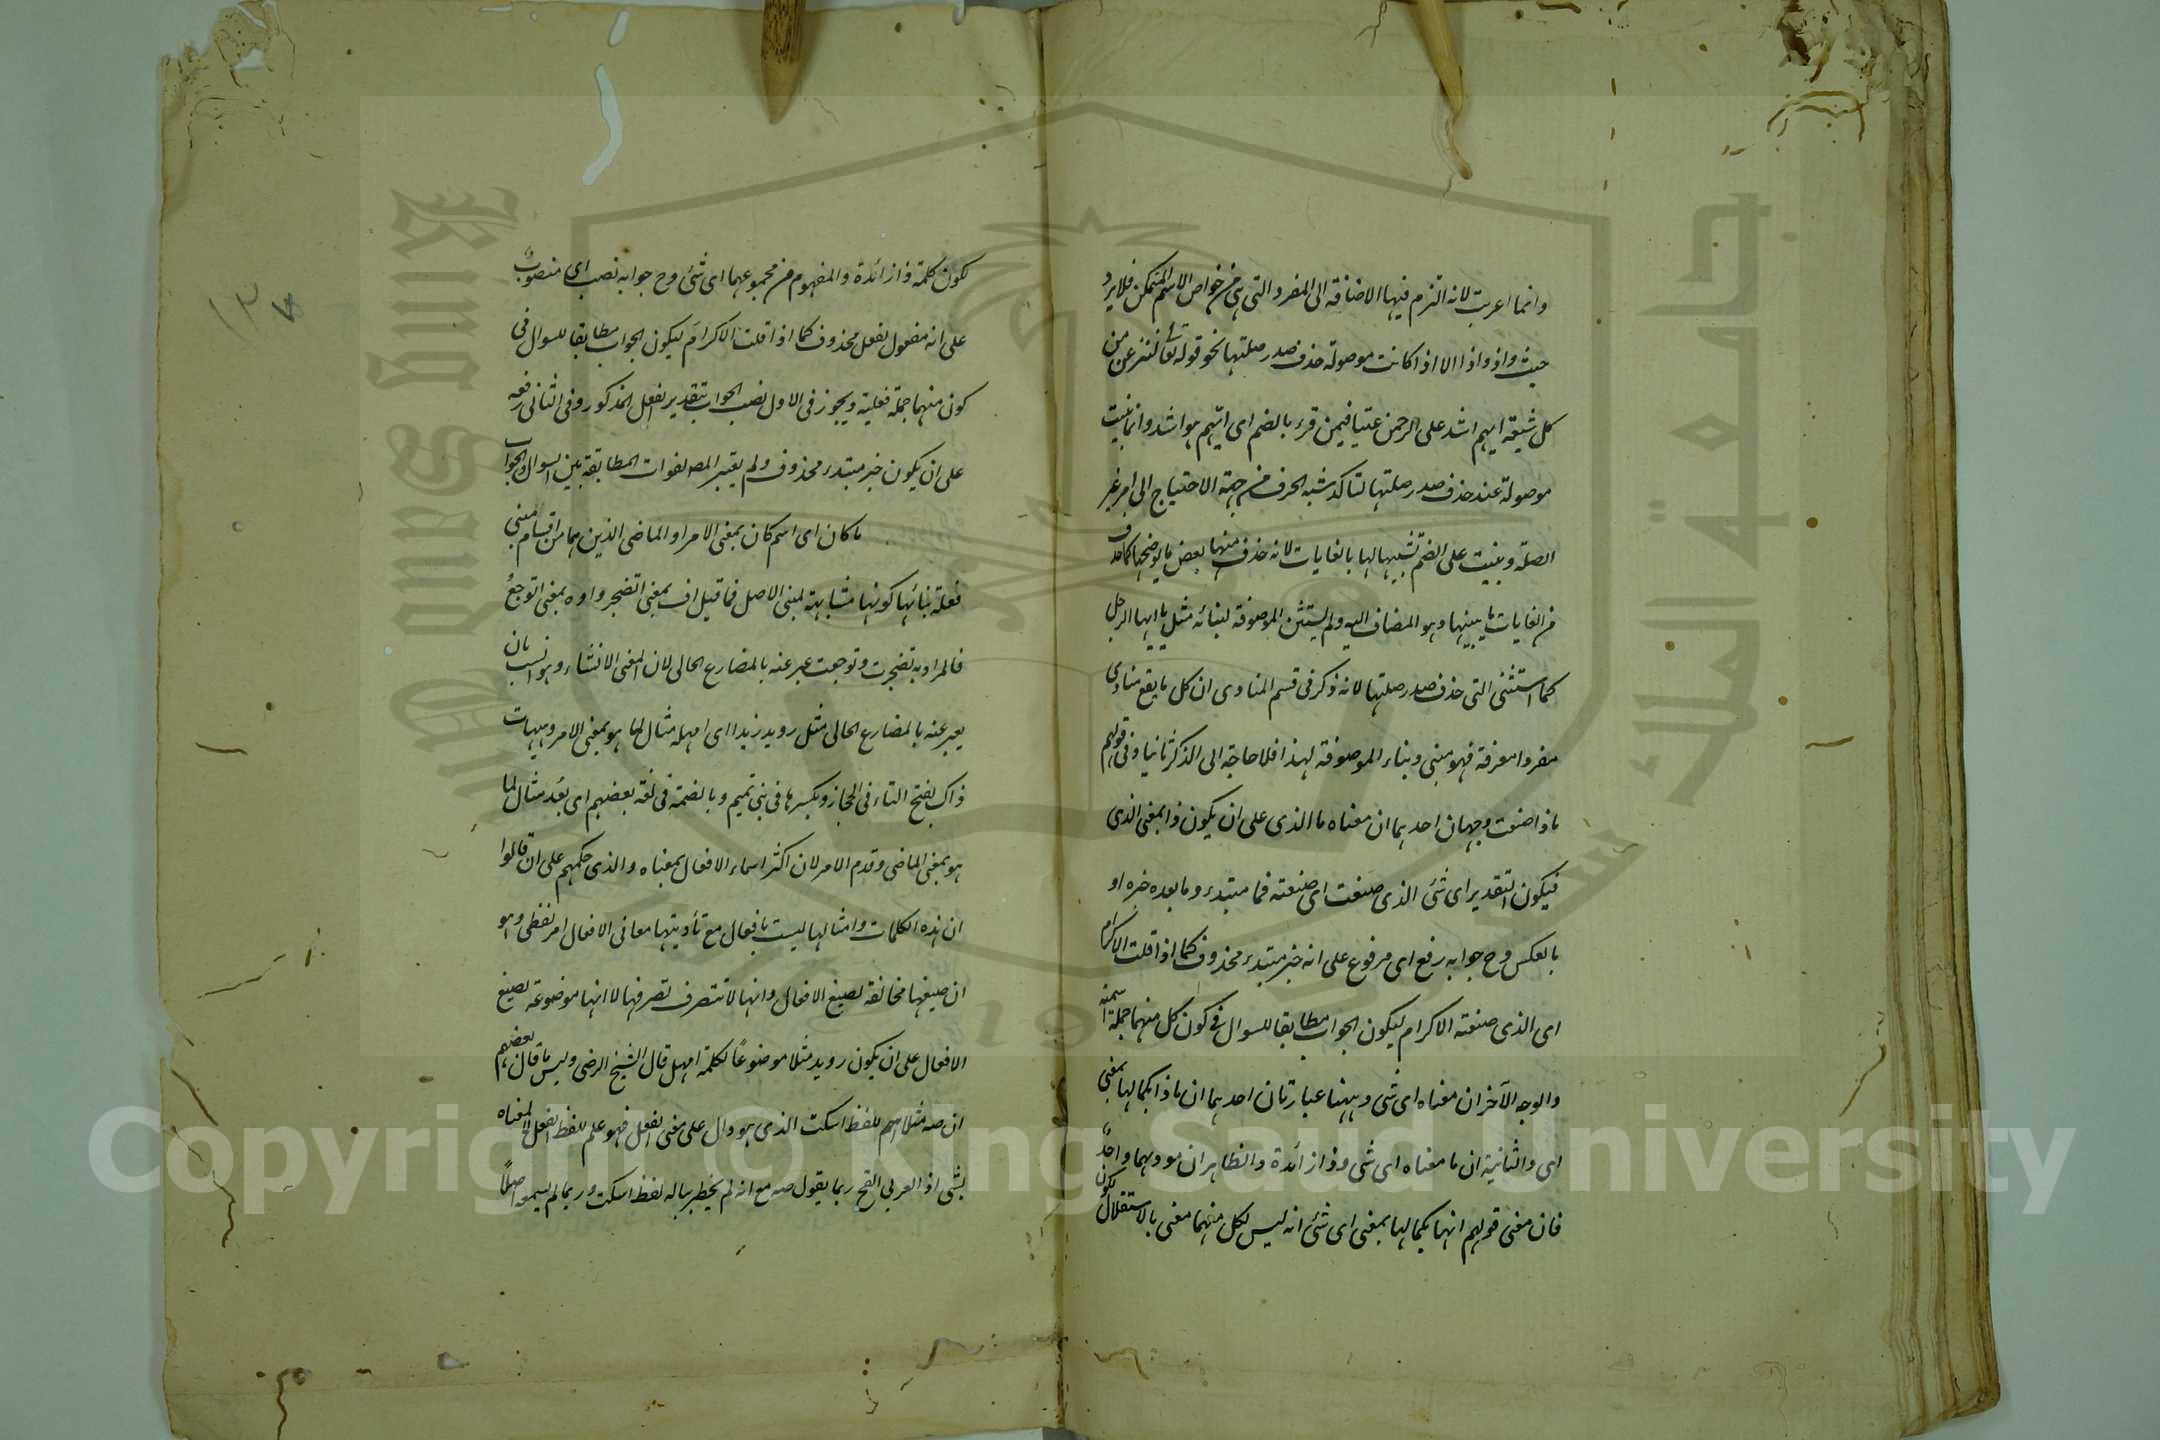 وانما اعربت لانه التزم فيها الاضافة الى المفرد التى هى من خواص الاسم المتمكن فلا يرد
حيث واذ واذا الا اذا كانت موصولة حذف صدر صلتها نحو قوله تعا لننزعن من
كل شيعة ايهم اشد على الرحمن عتيا فيمن قرء بالضم اى ايهم هو اشد وانما بنيت
موصولة عند حذف صدر صلتها لتاكد شبه الحرف من جهة الاحتياج الى امر غير
الصلة وبنيت على الضم تشبيها لها بالغايات لانه حذف منها بعض ما يوضحها كما حذف
من الغايات ما يبينها وهو المضاف اليه ولم يستثن الموصوفة لبنائه مثل يا ايها الرجل
كما استثنى التى حذف صدر صلتها لانه ذكر فى قسم المنادى ان كل ما يقع منادى
مفردا معرفة فهو مبنى وبناء الموصوفة لهذا فلا حاجة الى الذكر ثانيا وفى قولهم
ماذا صنعت وجهان احدهما ان معناه ما الذى على ان يكون ذا بمعنى الذى
فيكون التقدير اى شئ الذى صنعت اى صنعته فما مبتدء وما بعده خبره او
بالعكس وح جوابه رفع اى مرفوع على انه خبر مبتدء محذوف كما اذا قلت الاكرام
اى الذى صنعته الاكرام ليكون الجواب مطابقا للسوال فى كون كل منهما جملة اسمية
والوجه الآخر ان معناه اى شى وههنا عبارتان احدهما ان ماذا بكمالها بمعنى
اى والثانية ان ما معناه اى شى وذا زائدة والظاهر ان مودهما واحد
فان معنى قولهم انها بكمالها بمعنى اى شئ انه ليس لكل منهما معنى بالاستقلال لكون
١٣٧
لكون كلمة ذا زائدة والمفهوم من مجموعهما اى شئ وح جوابه نصب اى منصوب
على انه مفعول لفعل محذوف كما اذا قلت الاكرام ليكون الجواب مطابقا للسوال فى
كون منهما جملة فعلية ويجوز فى الاول نصب الجواب بتقدير الفعل المذكور وفى الثانى رفعه
على ان يكون خبر مبتدء محذوف ولم يعتبر المصـ لفوات المطابقة بين السوال والجواب
ما كان اى اسم كان بمعنى الامر او الماضى الذين هما من اقسام مبنى
فعلة بنائها كونها مشابهة لمبنى الاصل فما قيل اف بمعنى اتضجر واوه بمعنى اتوجع
فالمراد به تضجرت وتوجعت عبر عنه بالمضارع الحالى لان المعنى الانشاء وهو انسب بان
يعبر عنه بالمضارع الحالى مثل رويد زيدا اى امهله مثال لما هو بمعنى الامر وهيهات
ذاك بفتح التاء فى الحجاز وبكسرها فى بنى تميم وبالضمة فى لغة بعضهم اى بعد مثال لما
هو بمعنى الماضى وقدم الامر لان اكثر اسماء الافعال بمعناه والذى حكمهم على ان قالوا
ان هذه الكلمات وامثالها ليست بافعال مع تأديتها معانى الافعال امر لفظى وهو
ان صيغها مخالفة لصيغ الافعال وانها لا تتصرف تصرفها لا انها موضوعة لصيغ
الافعال على ان يكون رويد مثلا موضوعا لكلمة امهل قال الشيخ الرضى وليس ما قال بعضهم
ان صه مثلا اسم للفظ اسكت الذى هو دال على معنى الفعل فهو علم للفظ الفعل لا لمعناه
بشى اذ العربى القح ربما يقول صه مع انه لم يخطر بباله لفظ اسكت وربما لم يسمعه اصلا
جامعة الملك سعود
King Saud University
1957
Copyright © King Saud University